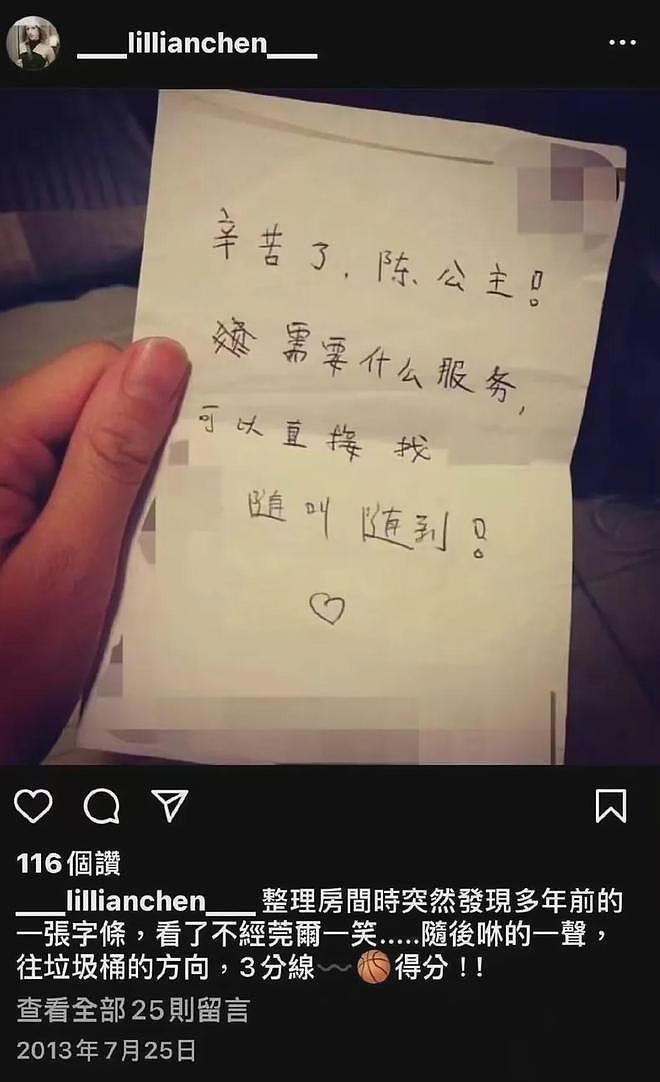 ___lillianchen___
辛苦了，陈公主！
需要什么服务，
可以直接找
随叫随到！
116個讚
___lillianchen___ 整理房間時突然發現多年前的
一張字條，看了不經莞爾一笑.....隨後咻的一聲，
往垃圾桶的方向，3分線〰️🏀得分！！
查看全部25則留言
2013年7月25日